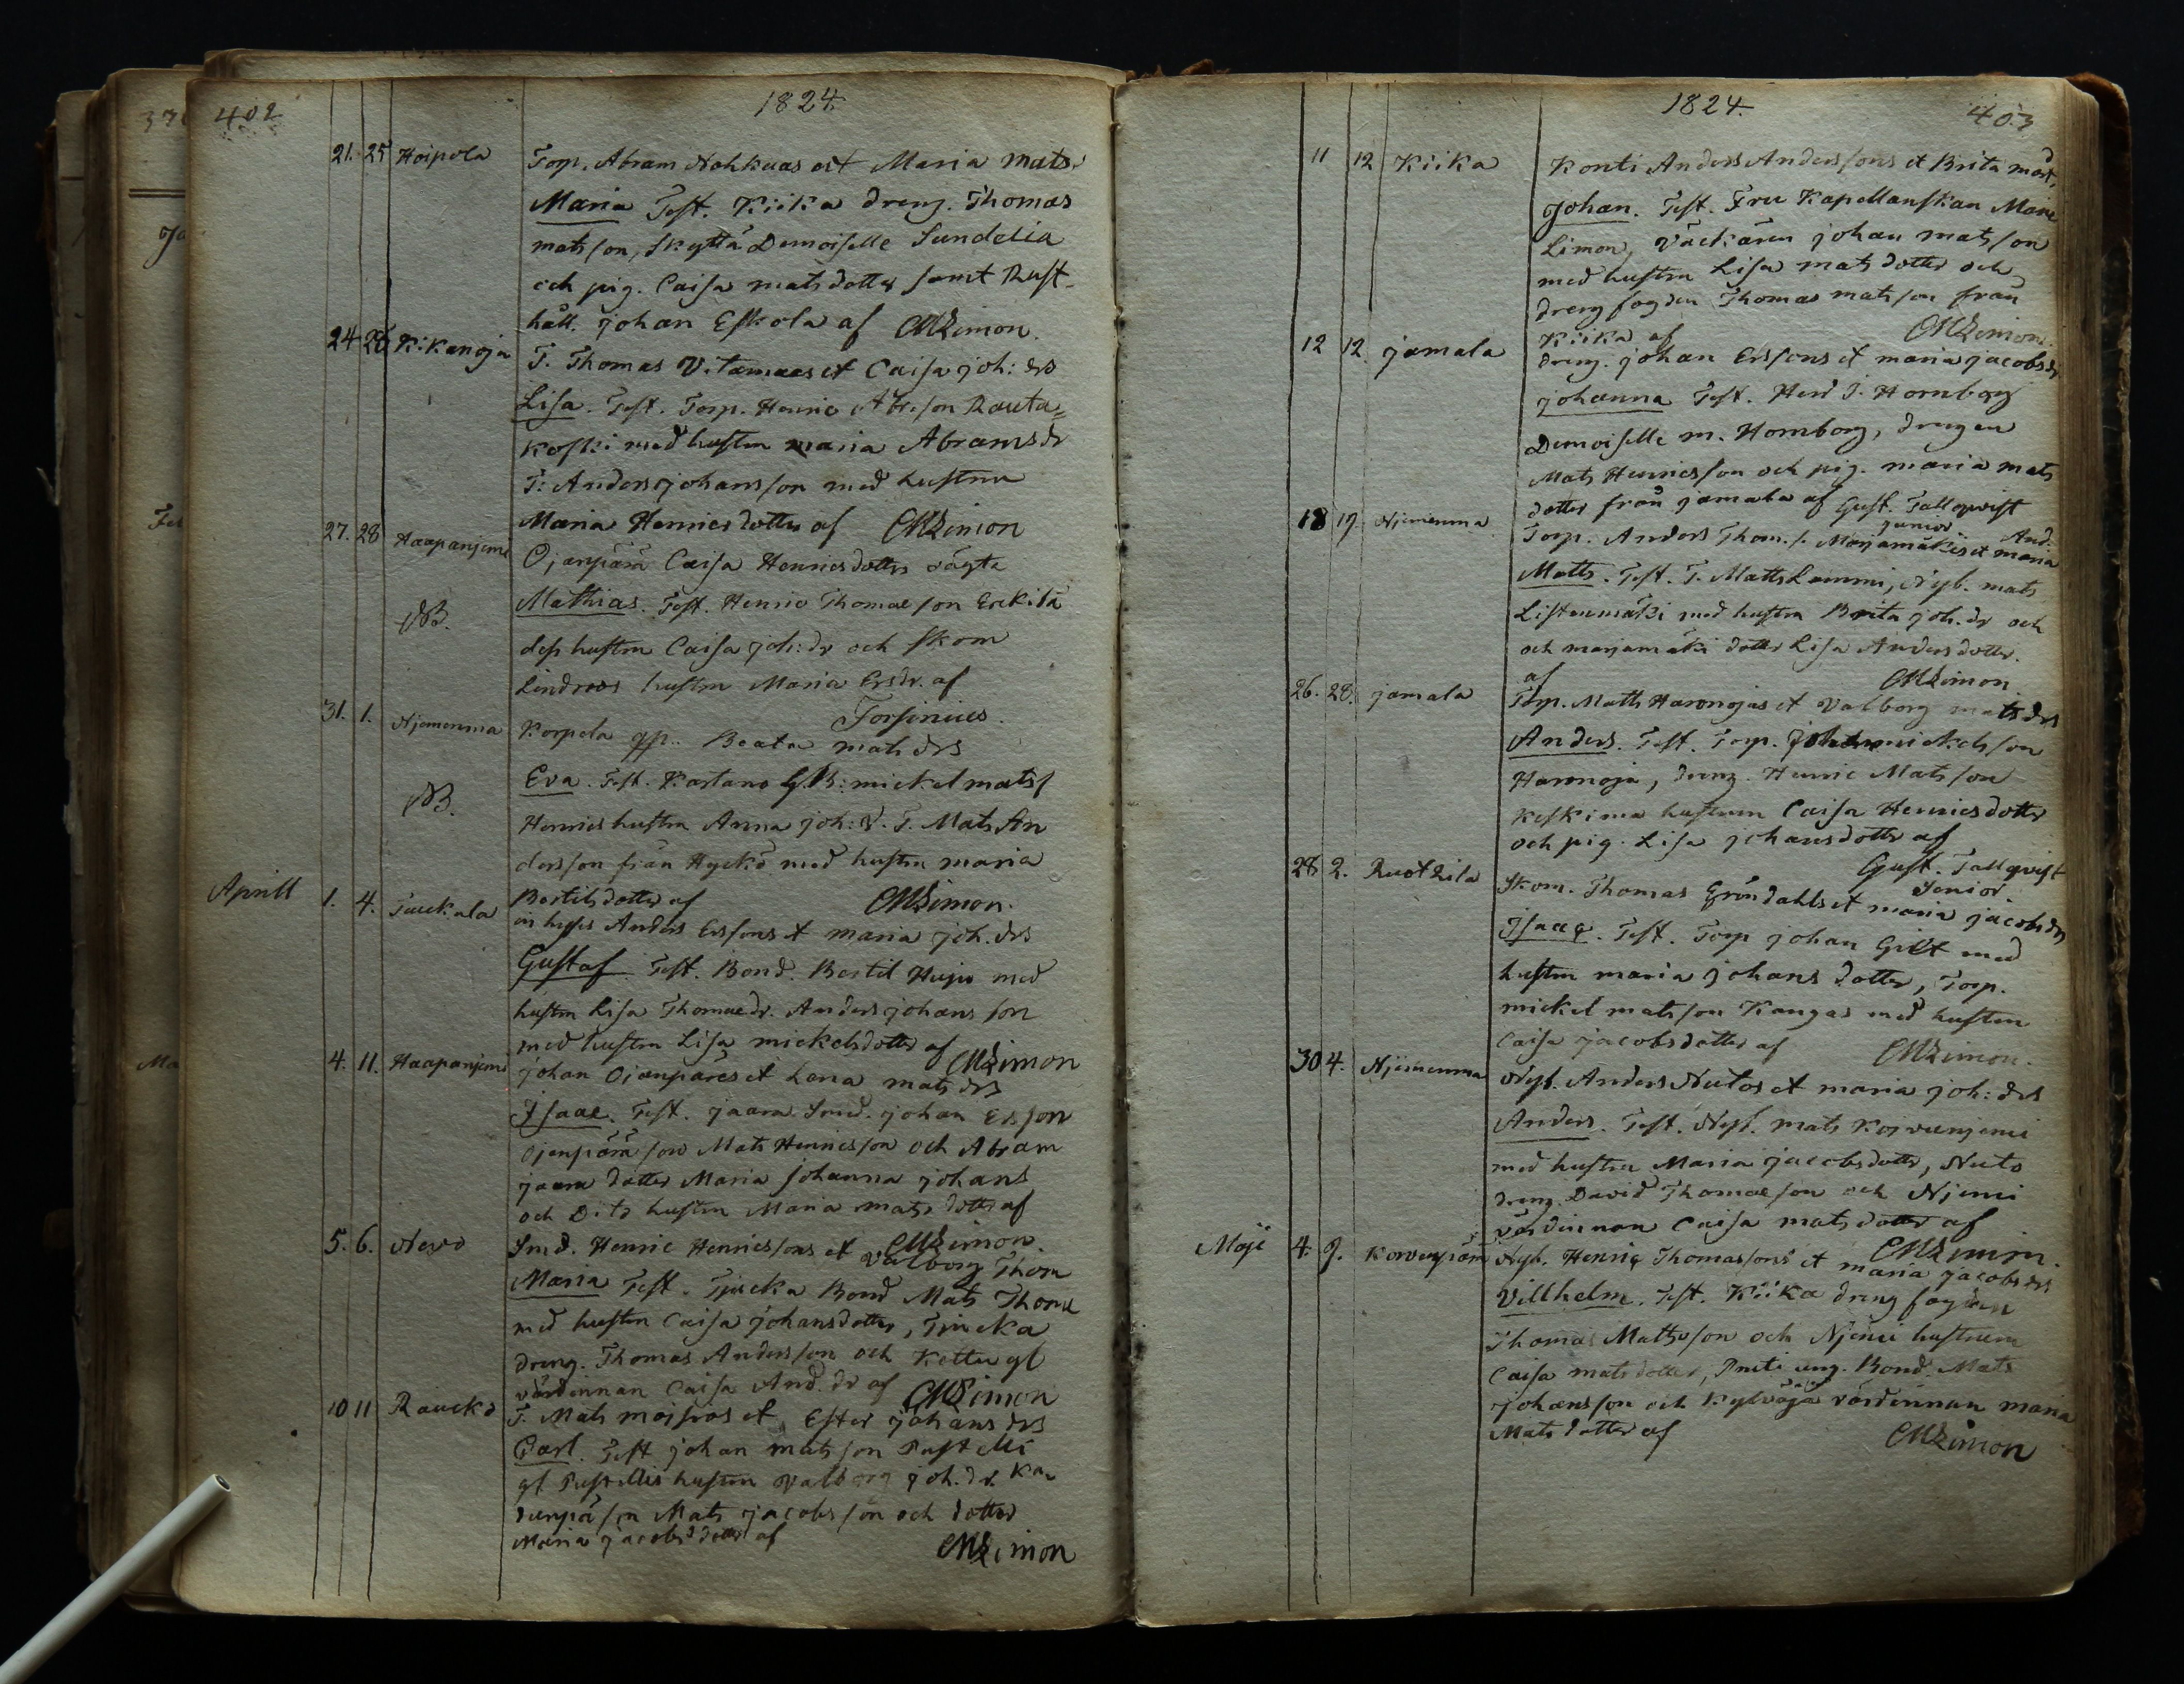 402
1824
21. 25 Hoipola Torp. Abram Nohkuas et Maria Mats.
Maria Test. Kiika dreng. Thomas
matsson, Skyttä Demoiselle Sundelia
och pig. Caisa matsdotter samt Rust-
håll. Johan Eskola af CMLimon.
24 26 Kikanoja T. Thomas Vitamaas et Caisa joh: drs
Lisa. Test. Torp. Henric Abr.son Rauta=
koski med hustrn maria Abramsdr
T: Anders johansson med hustrun
Maria Henricsdotter af CMLimon
27. 28 Haapanjemi Ojanpärä Caisa Henricsdotters oägta
NB. Mathias. Test. Henric Thomasson Erckilä
dess hustrn Caisa joh: dr och skom
Lindroos hustrn Maria Ersdr. af
Forsinius.
31. 1. Njemenma Korpela qp. Beata mats drs
NB. Eva. Test. Kartano G.B: mickel mats s
Henrics hustrn Anna joh: d. T. Mats An
dersson från Hyckö med hustrn maria
Bertilsdotter af CMLimon.
Aprill 1. 4. Tuckala inhyses Anders Erssons et maria joh. drs
Gustaf Test. Bond. Bertil Hujo med
hustrn Lisa Thomaedr. Anders johansson
med hustrn Lisa mickelsdotter af CMLimon
4. 11. Haapanjemi johan Ojanpäres et Lena mats drs
Isaac. Test. jaara Smed. johan Ersson
Ojenpärä son Mats Henricsson och Abram
jaara dotter Maria Johanna johans
och Dito hustrn Maria mats dotter af
CMLimon.
5. 6. Nexo Smd. Henric Henricssons et Valborg Thom
Maria Test. Tjucka Bond Mats Thome
med hustrn Caisa johansdotter, Tjucka
dreng. Thomas Andersson och Kettu gl
värdinnan Caisa And. dr af CMLimon
10 11 Raucko T. Mats moisios et Ester johans drs
Carl. Test johan matsson Pustelli
gl. Pustellis hustrn Valborg joh. dr. Ka-
dunpä son Mats jacobsson och dotter
Maria jacobsdotter af CMLimon
1824.
403
11 12 Kiika Konti Anders Anderssons et Brita Mart. d
Johan. Test. Fru Kapellanskan Marie
Limon, Väckären johan matsson
med hustrn Lisa matsdotter och
drengfogden Thomas matsson från
Kiika af CMLimon.
12 12. jamala dreng. johan Erssons et maria jacobsdr
johanna Test. Herr J. Hornborg
Demoiselle M. Hornborg, drengen
Mats Henricsson och pig. maria mats
dotter från jamala af Gust. Tallqvist
junior
18 19. Njemenma Torp. Anders Thom. s. Marjamäkis et maria And.
Matts. Test. T. Matts Lammi, Nyb. mats
Listenmäki med hustrn Brita joh. dr och
och marjamäki dotter Lisa Andersdotter.
af CMLimon
26. 28. jamala Torp. Matts Haronojas et Valborg mats drs
Anders. Test. Torp. johan mickelsson
Haronoja, dreng. Henric Matsson
Keskima hustrun Caisa Henricsdotter
och pig. Lisa johansdotter af
Gust. Tallqvist
Senior
28 2. Ruothila Skom. Thomas Gröndahls et maria jacobs drs
Isaac. Test. Torp johan Gilt med
hustrn maria johansdotter, Torp.
mickel matsson Kangas med hustrn
Caisa jacobsdotter af CMLimon.
30 4. Njemenma Nyb. Anders Nutos et maria joh: drs
Anders. Test. Nyb. mats Koivunjemi
med hustrn Maria jacobsdotter, Nuto
dreng. David Thomasson och Njemi
värdinnan Caisa matsdotter af
CMLimon.
Maji 4. 9. Korvenpää Nyb. Henric Thomassons et maria jacobs drs
Villhelm. Test. Kiika dreng fogden
Thomas Mattsson och Njemi hustrun
Caisa matsdotter, Pruti ung. Bond. Mats
Johansson och Kylväjä värdinnan maria
Matsdotter af CMLimon